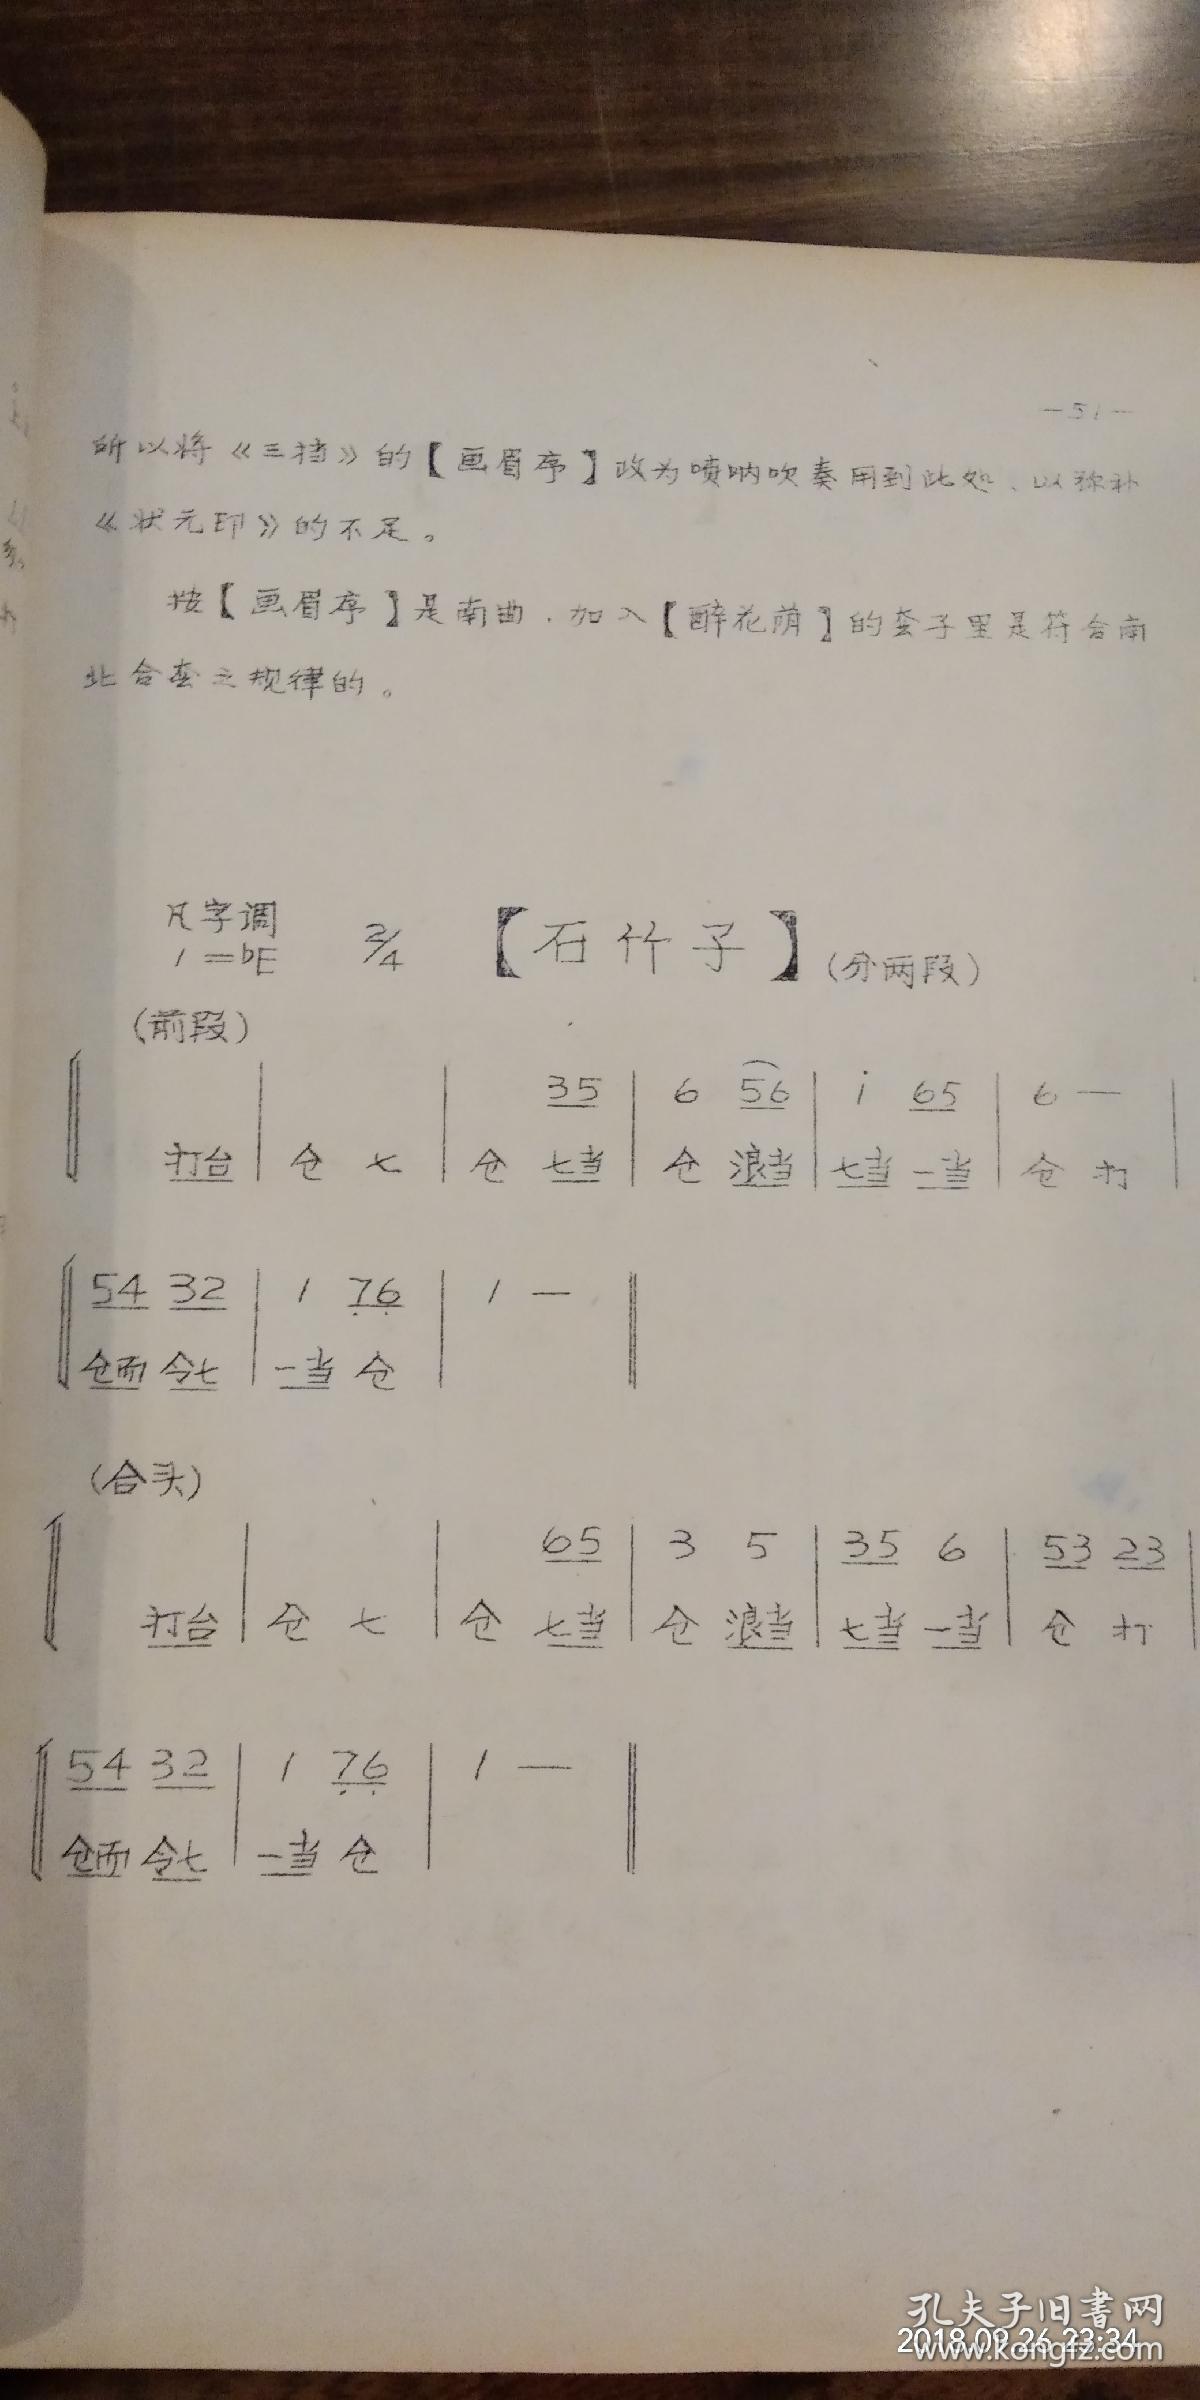 —51—
所以将《三挡》的【画眉序】改为喷呐吹奏用到此处、以弥补
《状元印》的不足。
按【画眉序】是南曲.加入【醉花荫】的套子里是符合南
北合套之规律的。
凡字调
1=bE 2/4 【石竹子】(分两段)
(前段)
35 | 6 56 | i 65 | 6 — |
打台 | 仓 七 | 仓 七当 | 仓 浪当 | 七当 一当 | 仓 打 |
54 32 | 1 76 | 1 — ‖
仓而 令七 | 一当 仓 | ‖
(合头)
65 | 3 5 | 35 6 | 53 23 |
打台 | 仓 七 | 仓 七当 | 仓 浪当 | 七当 一当 | 仓 打 |
54 32 | 1 76 | 1 — ‖
仓而 令七 | 一当 仓 | ‖
孔夫子旧书网
2018.09.26 23:34
www.kongfz.com